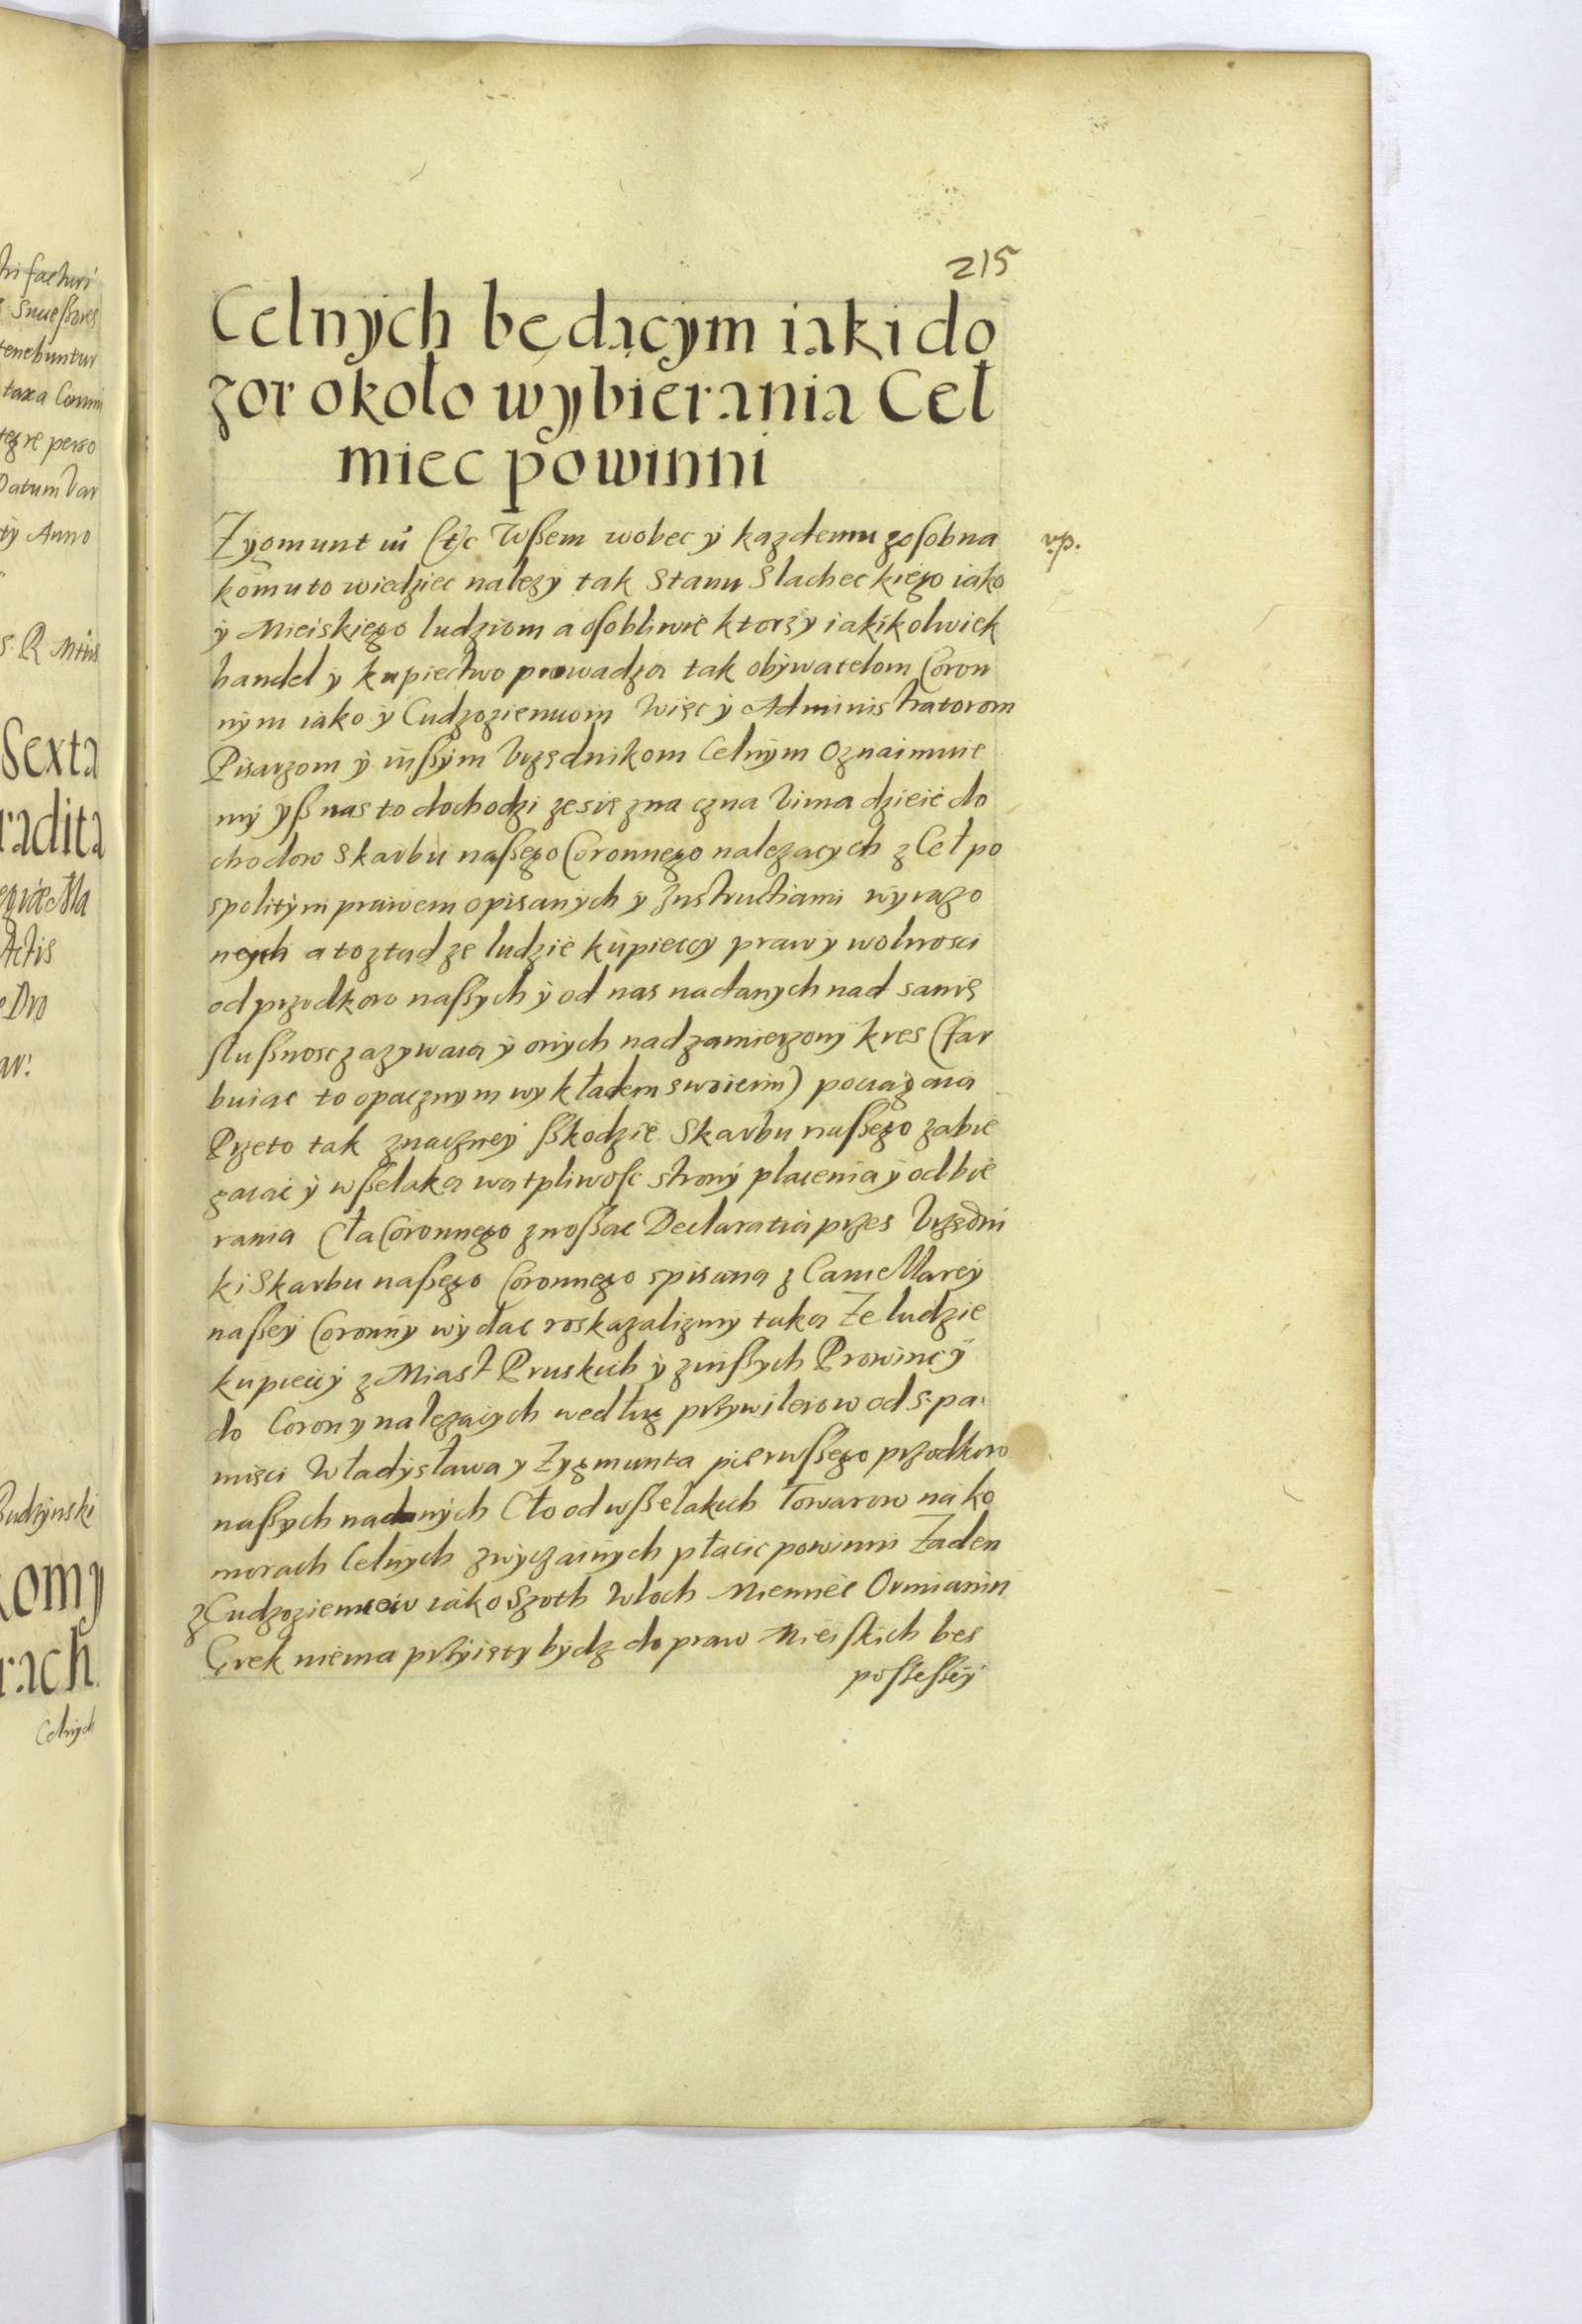 215
Celnych będącym iaki do
zor około wybierania Ceł
miec powinni
Zygmunt III etc Wßem wobec y kazdemu zosobna
komu to wiedziec nalezy tak Stanu Slacheckiego iako
y Mieiskiego ludziom a osobliwie ktorzy iakikolwiek
handel y kupiectwo prowadzą tak obywatelom Coron
nym iako y Cudzoziemcom Więc y Administratorom
Pisarzom y inßym Vrzędnikom Celnym Oznaimuie
my yß nas to dochodzi ze się znaczna Vima dzieie do
chodow Skarbu naßego Coronnego nalezących z Ceł po
spolitym prawem opisanych y Instructiami wyrazo
nych a to ztąd ze ludzie kupieccy praw y wolnosci
od przodkow naßych y od nas nadanych nad samę
slußnosc zazywaią y onych nad zamierzony kres (far
buiąc to opacznym wykładem swoiem) pociągaią
Przeto tak znaczney ßkodzie Skarbu naßego zabie
gaiąc y wßelaką wątpliwosc strony placenia y odbie
rania Cła Coronnego znoßąc Declaratią przes Vrzędni
ki Skarbu naßego Coronnego spisaną z Cancellariey
naßey Coronny wydac roskazalizmy taką Ze ludzie
kupieccy z Miast Pruskich y z inßych Prowincy
do Corony nalezących według przywileiow od s. pa.
mięci Władysława y Zygmunta pierwßego przodkow
naßych nadanych Cło od wßelakich Towarow na ko
morach Celnych zwyczainych płacic powinni Zaden
z Cudzoziemcow iako Szoth Wloch Niemiec Ormianin
Grek niema przyięty bydz do praw Mieiskich bes
possessey
tri facturi
Successores
tenebuntur
taxa
Datum Var
Anno
Sexta
radita
Actis
Budzynski
komy
rach
Celnych